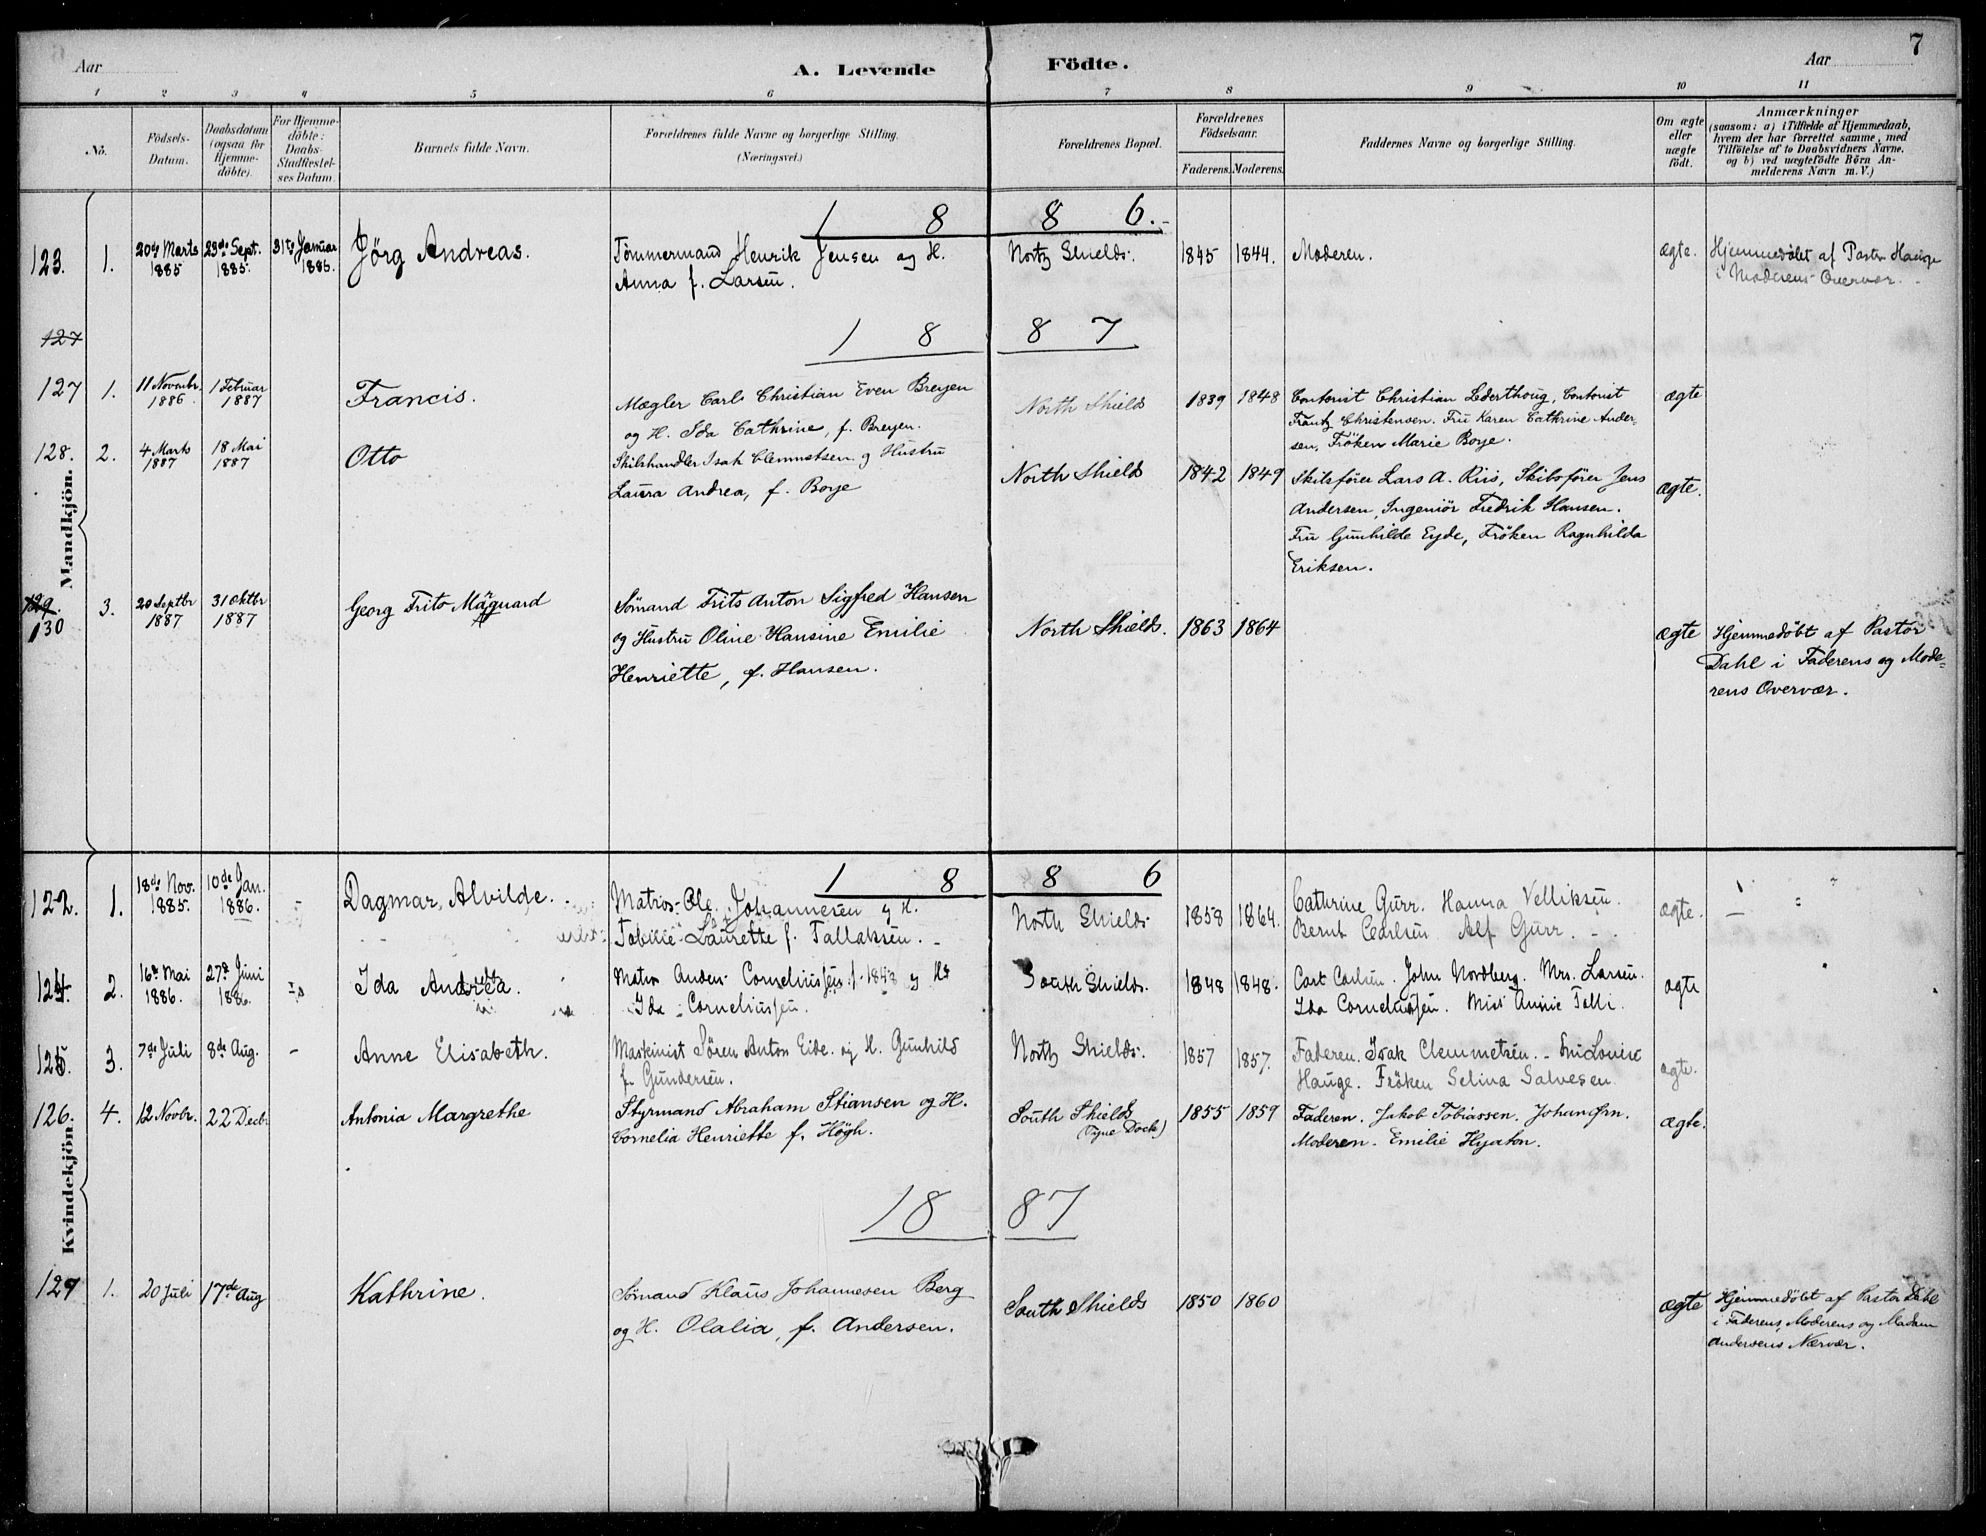 7
Aar
A. Levende
Födte.
Aar
1 2 3 4 5 6 7 8 9 10 11
No.
Födsels-
Datum.
Daabsdatum
(ogsaa for
Hjemme-
döbte).
For Hjemme-
döbte:
Daabs-
Stadfæstel-
ses Datum.
Barnets fulde Navn.
Forældrenes fulde Navne og borgerlige Stilling.
(Næringsvei.)
Forældrenes Bopæl.
Forældrenes
Födselsaar.
Faderens. Moderens.
Faddernes Navne og borgerlige Stilling.
Om ægte
eller
uægte
födt.
Anmærkninger
(saasom: a) i Tilfælde af Hjemmedaab,
hvem der har forrettet samme, med
Tilföielse af to Daabsvidners Navne.
og b) ved uægtefödte Börn An-
melderens Navn m. V.)
Mandkjön.
1 8 8 6.
123. 1. 20de Marts 23de Sept. 31te Januar Jörg Andreas. Tømmermand Henrik Jensen og H. North Shields. 1845 1844. Moderen. ægte. Hjemmedøbt af Pastor Hauge
1885 1885. 1886. Anna f. Larsen. i Moderens Overvær.
127
1 8 8 7
127 1. 11 Novembr. 1 Februar Francis. Mægler Carl Christian Even Breyen North Shields 1839 1848 Contorist Christian Lederthoug, Contorist ægte
1886 1887 og H. Ida Cathrine, f. Breyen. Frantz Christensen. Fru Karen Cathrine Ander-
sen, Frøken Marie Boye.
128. 2. 4 Marts 18 Mai Otto Skibshandler Isak Clemmetsen og Hustru North Shields 1842 1849 Skibsfører Lars A. Riis, Skibsfører Jens ægte.
1887 1887 Laura Andrea, f. Boye Andersen, Ingeniör Fredrik Hansen.
Fru Gunhilde Eyde, Fröken Ragnhilda
Eriksen.
129.
130 3. 20 Septbr 31 Oktbr Georg Frits Mägnard Sømand Frits Anton Sigfred Hansen North Shields. 1863 1864 ægte Hjemmedøbt af Pastor
1887 1887 og Hustru Oline Hansine Emilie Dahl i Faderens og Mode-
Henriette, f. Hansen. rens Overvær.
Kvindekjön.
1 8 8 6
122. 1. 18de Nov. 10de Jan. - Dagmar Alvilde. Matros Ole Johannesen og H. North Shields 1858 1864. Cathrine Gurr. Hanna Velliksen. ægte.
1885. 1886. Tobilie Laurette f. Tallaksen. Bernt Carlsen Alf Gurr.
124. 2. 16de Mai 27de Juni Ida Andrea. Matros Anders Corneliussen f. 1848 og H. South Shields. 1848 1848. Carl Carlsen. John Nordberg. Mrs. Larsen. ægte
1886. 1886. Ida Corneliussen. Ida Corneliussen. Miss Annie Telli.
125 3. 7de Juli 8de Aug. - Anne Elisabeth. Maskinist Søren Anton Eide og H. Gunhild North Shields. 1857 1857. Faderen. Isak Clemmetsen. Fru Lovise ægte.
f. Gundersen. Hauge. Frøken Selina Salvesen
126. 4. 12 Novbr. 22 Decbr. Antonia Margrethe Styrmand Abraham Stiansen og H. South Shields 1855 1859 Faderen. Jakob Tobiassen. Johan Örn. ægte.
Cornelia Henriette f. Högh. (Tyne Dock) Moderen. Emilie Hyaton.
18 87
129 1. 20 Juli 17de Aug Kathrine. Sømand Klaus Johannesen Berg South Shields 1850 1860 ægte Hjemmedøbt af Pastor Dahl
og H. Olalia, f. Andersen. i Faderens, Moderens og Madam
Andersens Nærvær.